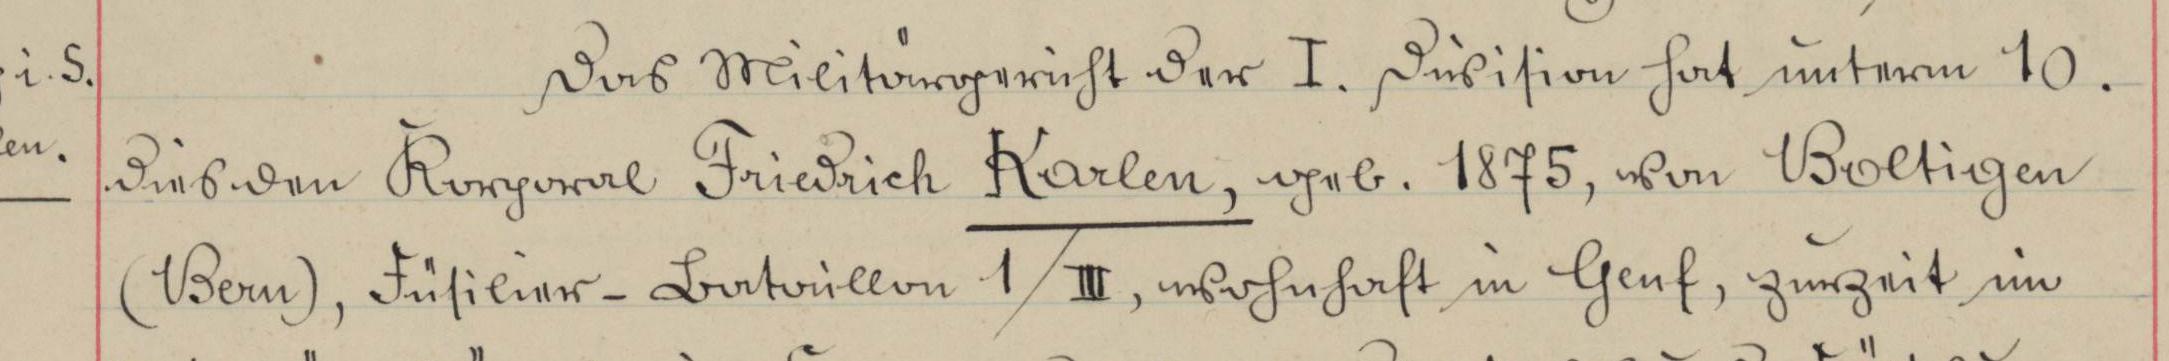 i. S.
Das Militärgericht der I. Division hat unterm 10.
en.
dies den Korporal Friedrich Karlen, geb. 1875, von Boltigen
(Bern), Füsilier-Bataillon 1/III, wohnhaft in Genf, zurzeit im